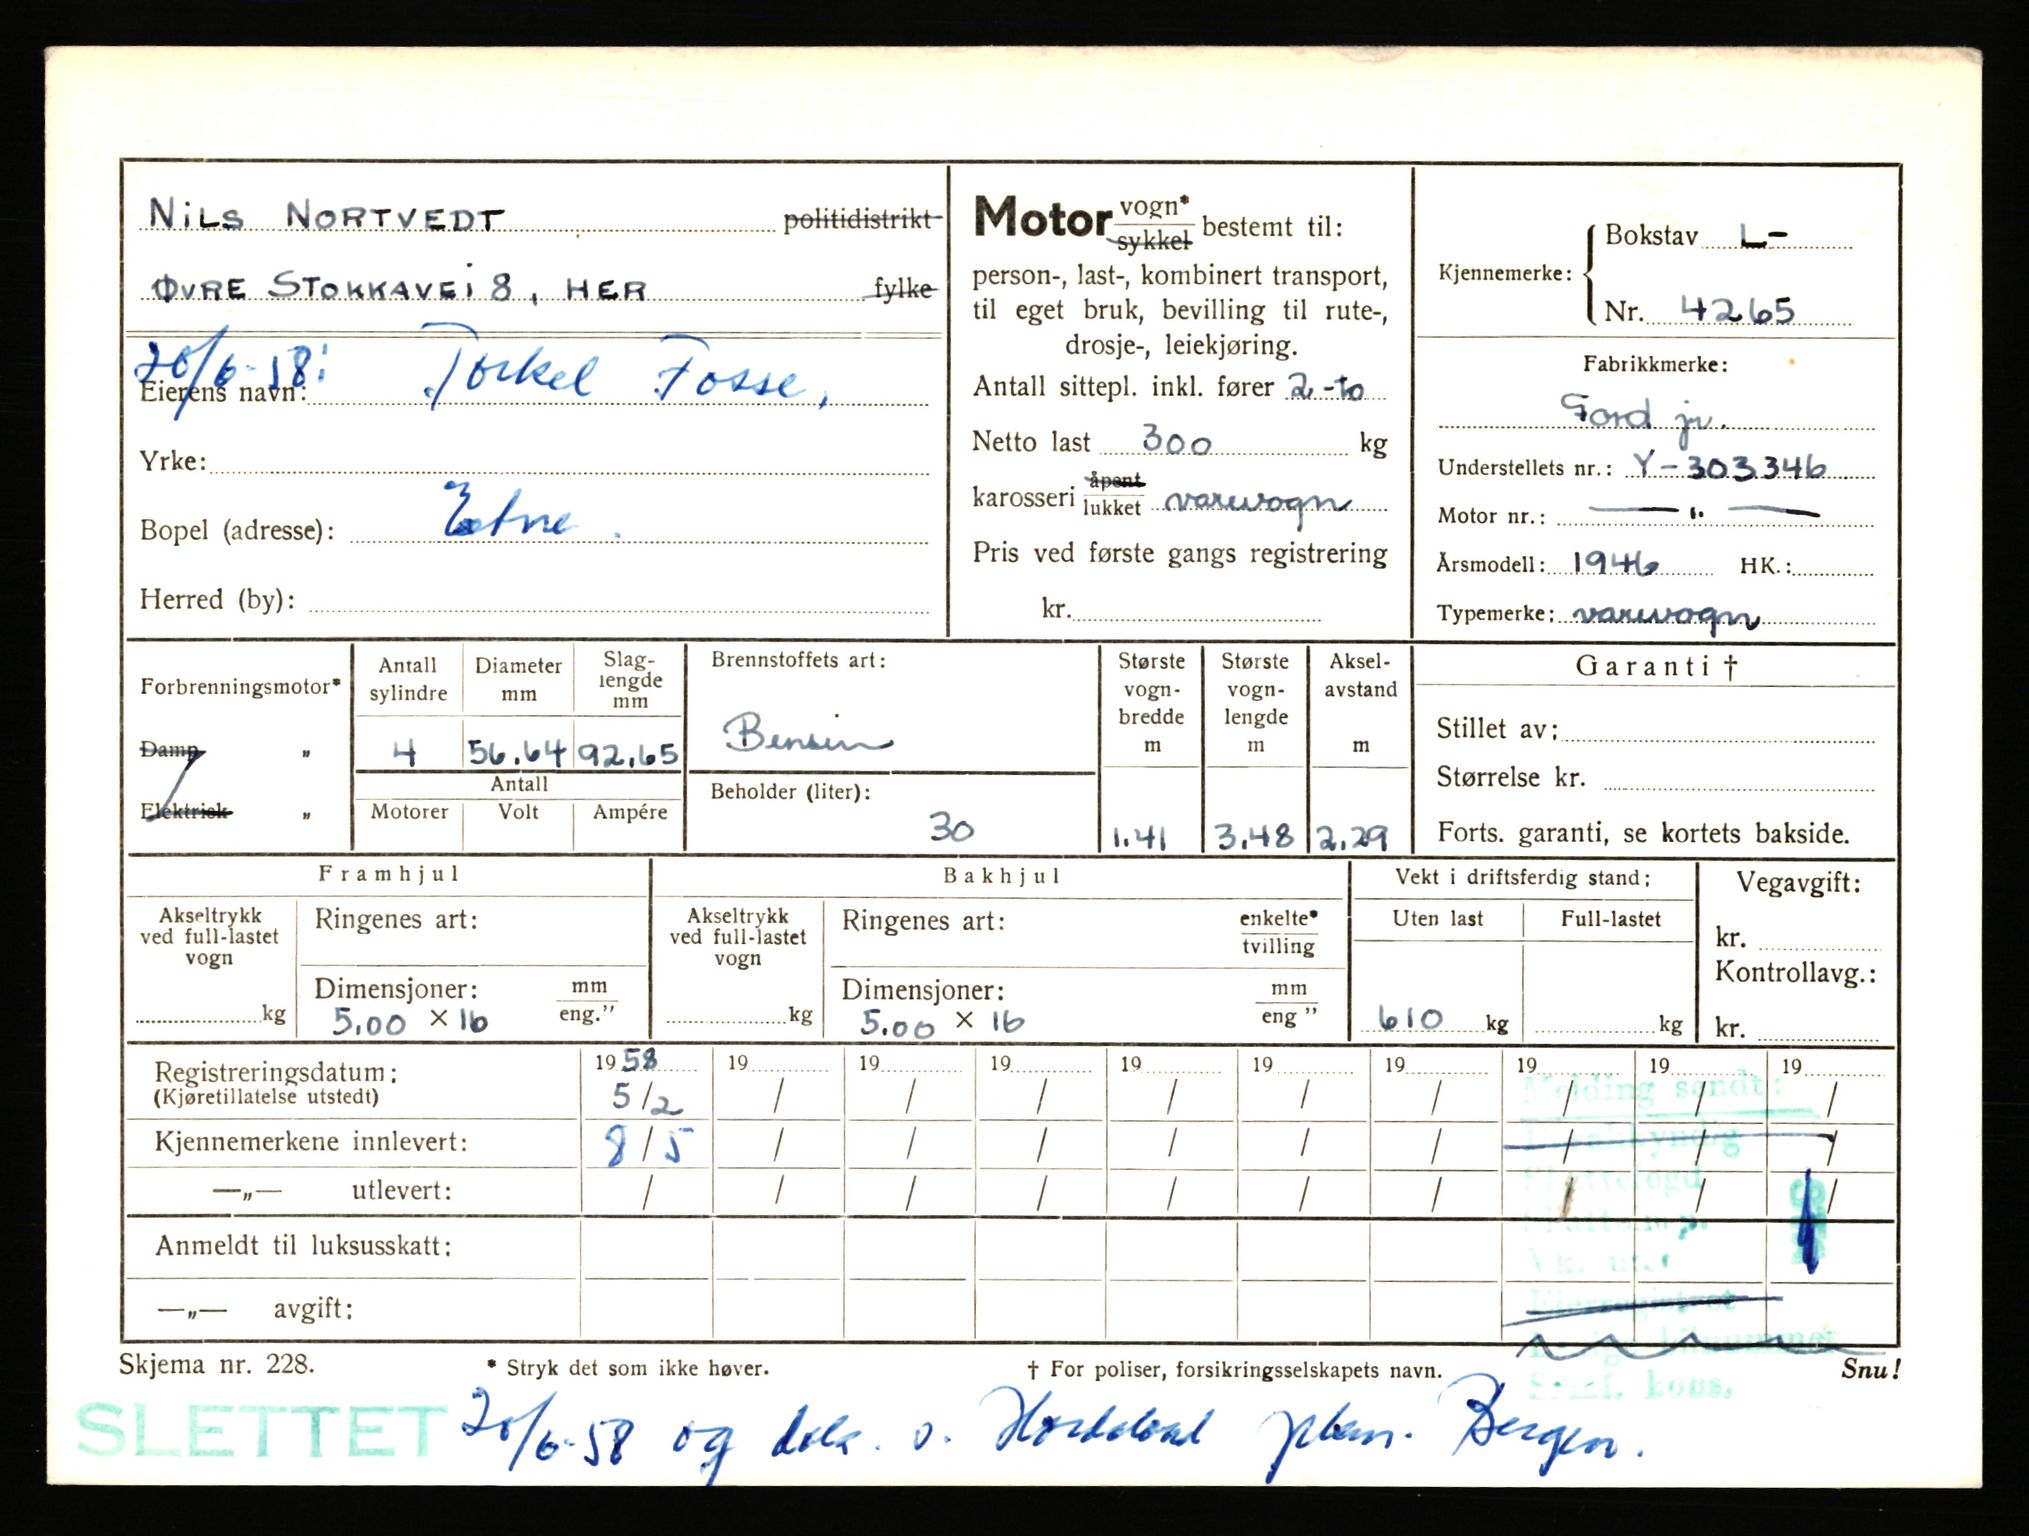 NILS NORTVEDT politidistrikt
ØVRE STOKKAVEI 8, HER fylke
20/6-58: Torkel Fosse,
Eierens navn:
Yrke:
Bopel (adresse): Etne.
Herred (by):
Motor vogn* sykkel bestemt til:
person-, last-, kombinert transport,
til eget bruk, bevilling til rute-,
drosje-, leiekjøring.
Antall sittepl. inkl. fører 2-to
Netto last 300 kg
karosseri åpent lukket varevogn
Pris ved første gangs registrering
kr.
Kjennemerke: Bokstav L-
Nr. 4265
Fabrikkmerke:
Ford jr.
Understellets nr.: Y-303346
Motor nr.: — " —
Årsmodell: 1946 HK.:
Typemerke: varevogn
Forbrenningsmotor*
Damp "
Elektrisk "
Antall sylindre Diameter mm Slag-lengde mm
4 56.64 92.65
Antall
Motorer Volt Ampére
Brennstoffets art:
Bensin
Beholder (liter):
30
Største vogn-bredde m Største vogn-lengde m Aksel-avstand m
1.41 3.48 2.29
Garanti †
Stillet av;
Størrelse kr.
Forts. garanti, se kortets bakside.
Framhjul
Akseltrykk ved full-lastet vogn
kg
Ringenes art:
Dimensjoner: mm eng."
5.00 × 16
Bakhjul
Akseltrykk ved full-lastet vogn
kg
Ringenes art: enkelte* tvilling
Dimensjoner: mm eng "
5.00 × 16
Vekt i driftsferdig stand;
Uten last Full-lastet
610 kg kg
Vegavgift:
kr.
Kontrollavg.:
kr.
Registreringsdatum: 1958 19 19 19 19 19 19 19 19 19
(Kjøretillatelse utstedt) 5/2 / / / / / / / / /
Kjennemerkene innlevert: 8/5 / / / / / / / / /
—„— utlevert: / / / / / / / / / /
Anmeldt til luksusskatt:
—„— avgift:
Melding sendt:
Skjema nr. 228. * Stryk det som ikke høver. † For poliser, forsikringsselskapets navn. Snu!
SLETTET 20/6-58 og dek. s. Hordaland Bergen.